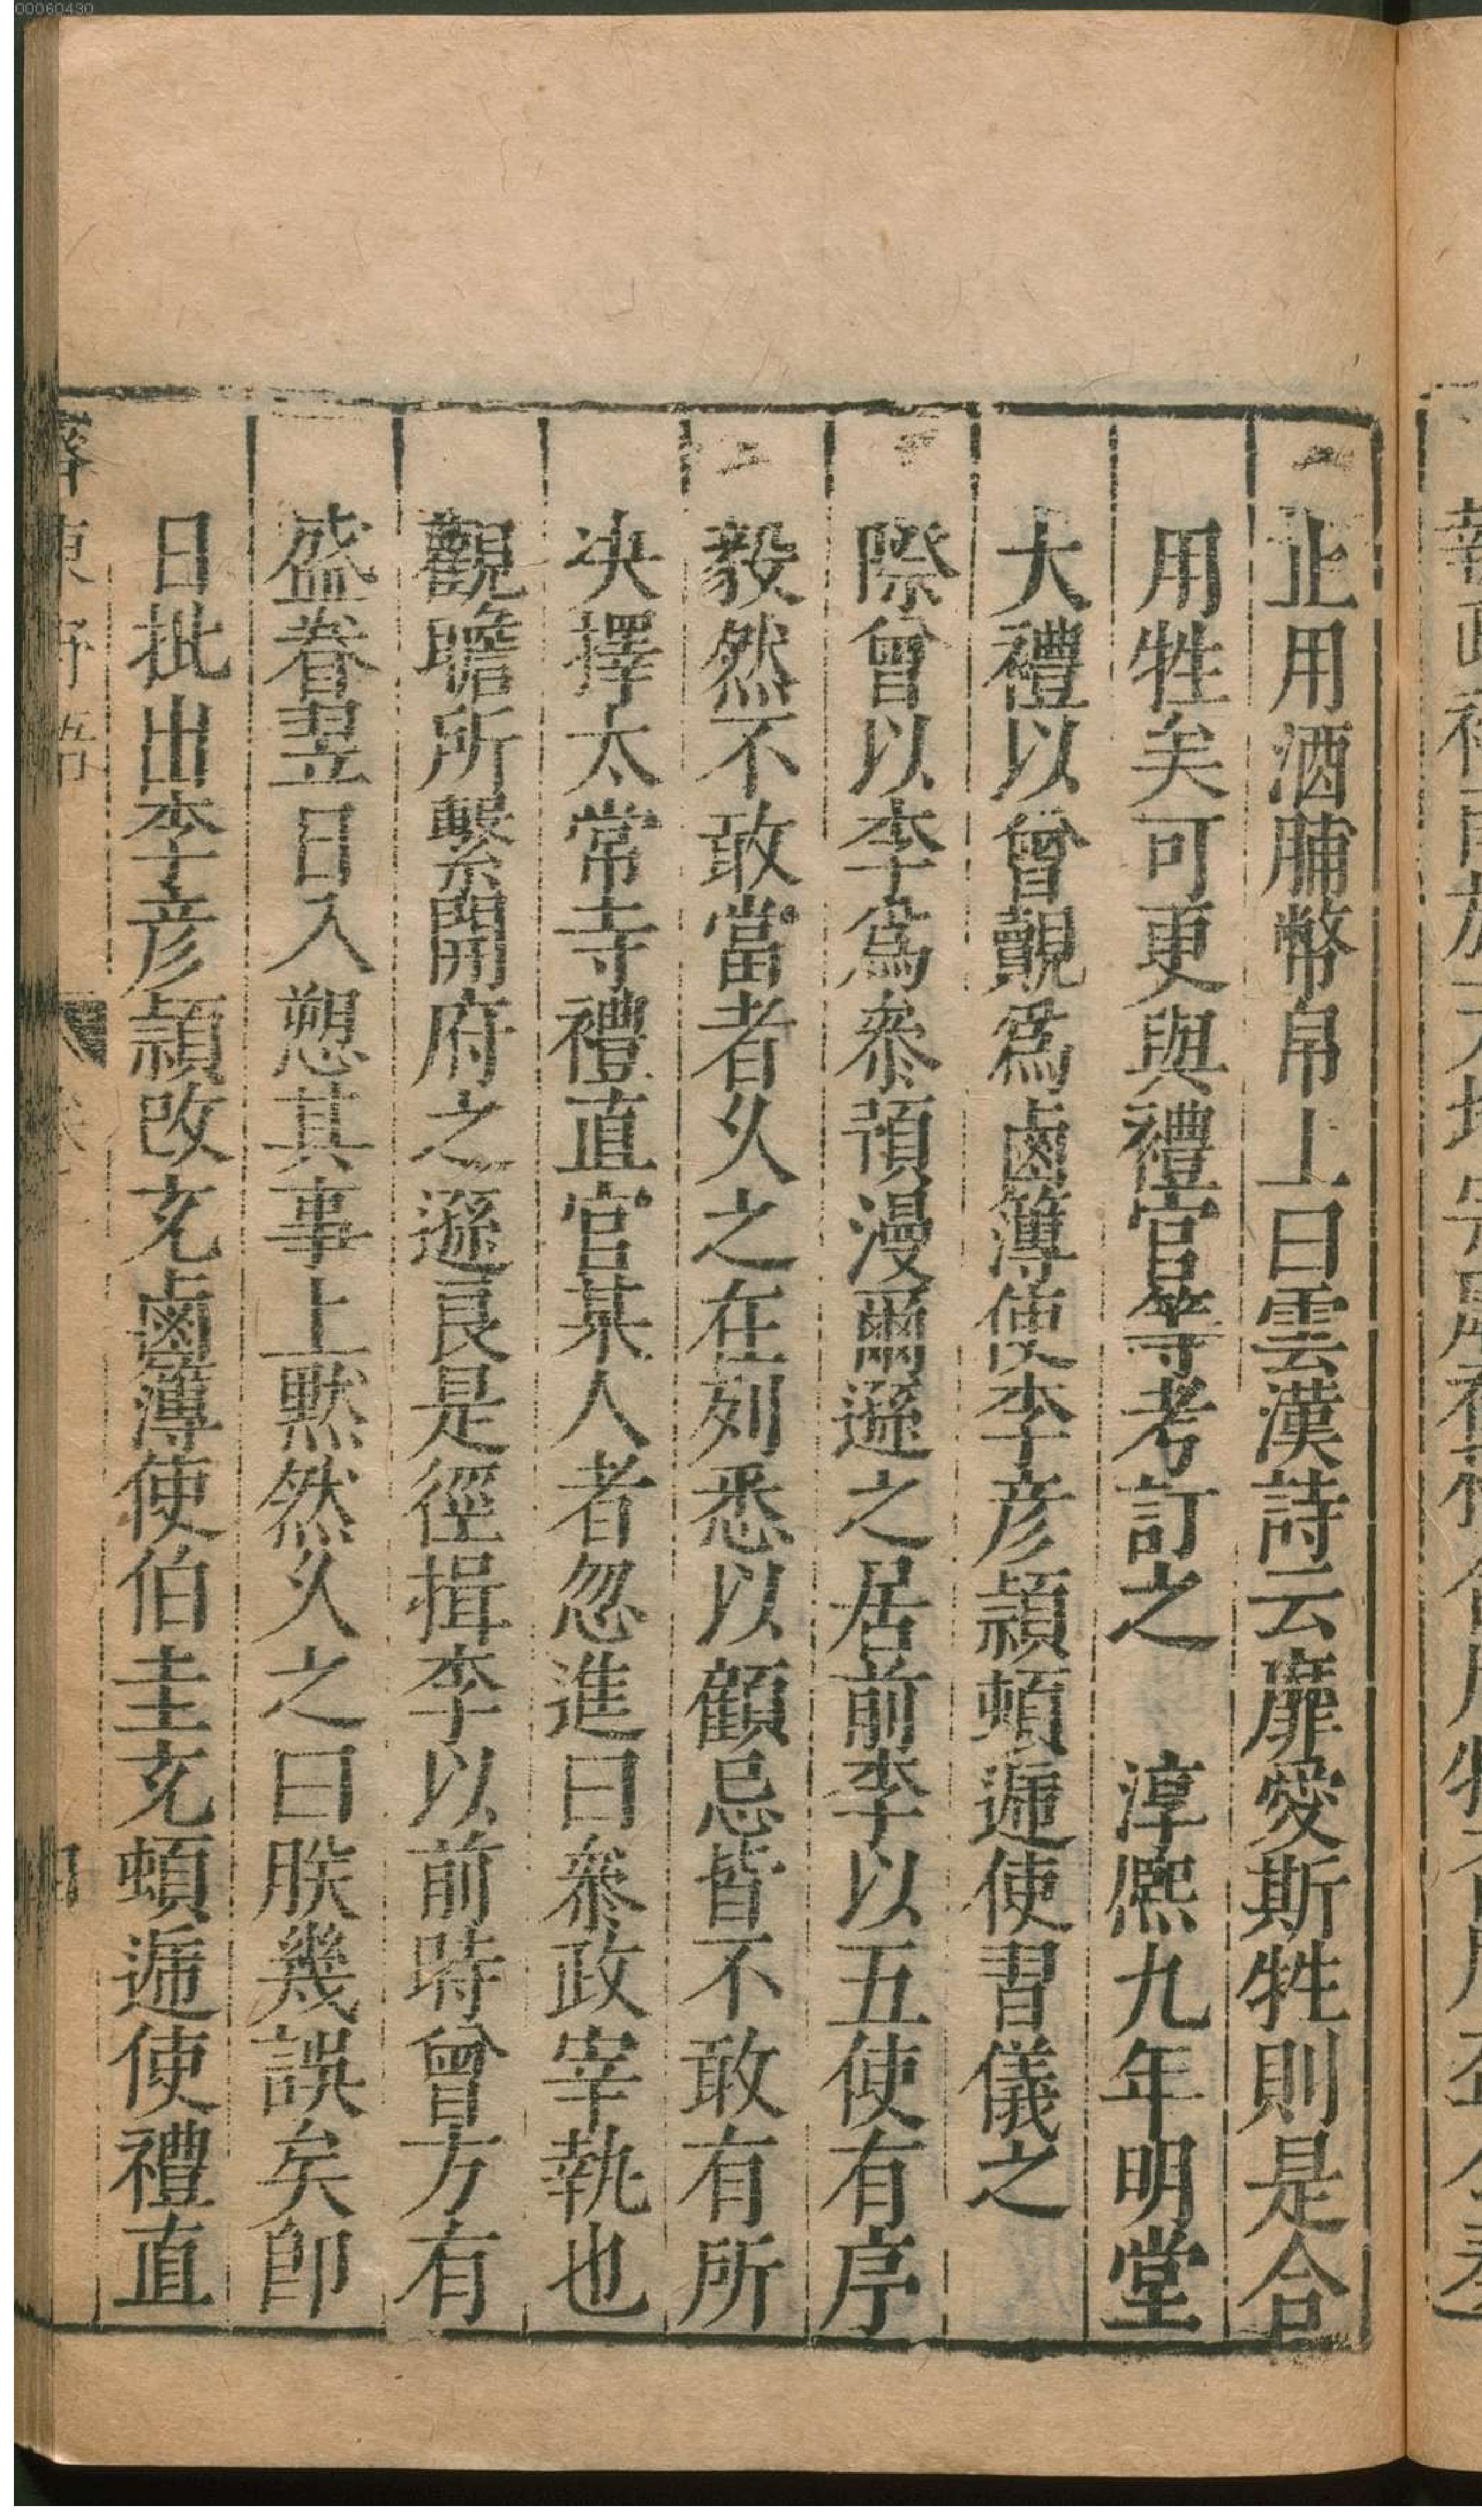 止用酒脯幣帛上曰雲漢詩云靡愛斯牲則是合
用牲矣可更與禮官等考訂之　淳熈九年明堂
大禮以曾覿爲鹵簿使李彦頴頓遞使習儀之
際曾以李爲叅預漫爾遜之居前李以五使有序
毅然不敢當者久之在列悉以顧忌皆不敢有所
决擇太常寺禮直官某人者忽進曰叅政宰執也
觀瞻所繫開府之遜良是徑揖李以前時曾方有
盛眷翌日入愬其事上黙然久之曰朕幾誤矣卽
日批出李彦頴改充鹵簿使伯圭充頓遞使禮直
00060430